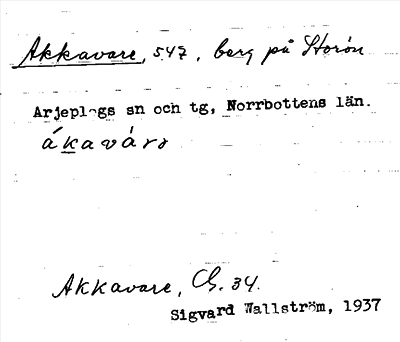 Akkavare, 547, berg på Storön
Arjeplogs sn och tg, Norrbottens län.
ákavárə
Akkavare, Ch. 34.
Sigvard Wallström, 1937